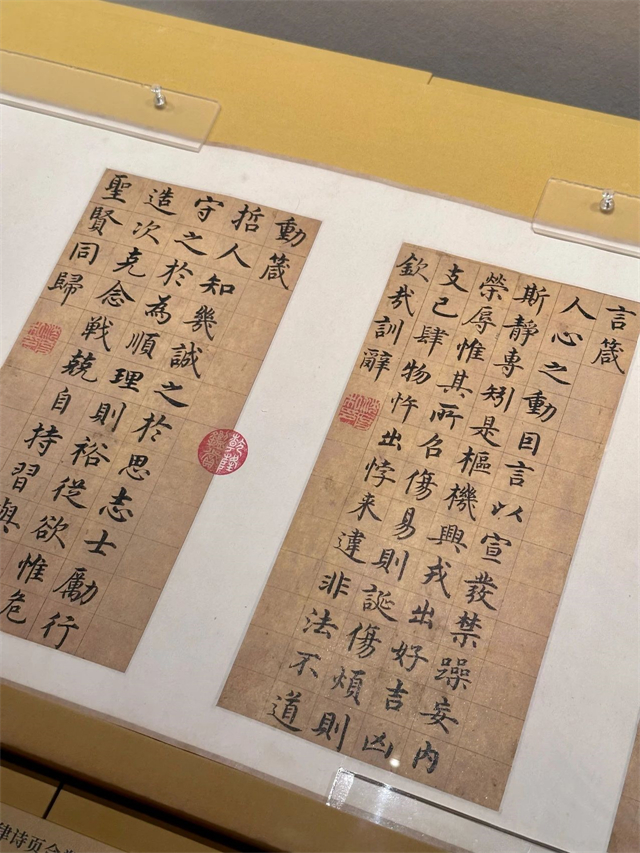 言箴
人心之動因言以宣發禁躁妄內
斯靜專矧是樞機興戎出好吉凶
榮辱惟其所召傷易則誕傷煩則
支己肆物忤出悖来違非法不道
欽哉訓辭
動箴
哲人知幾誠之於思志士勵行
守之於為順理則裕從欲惟危
造次克念戦兢自持習與
聖賢同歸
乾隆鑑賞
律诗页